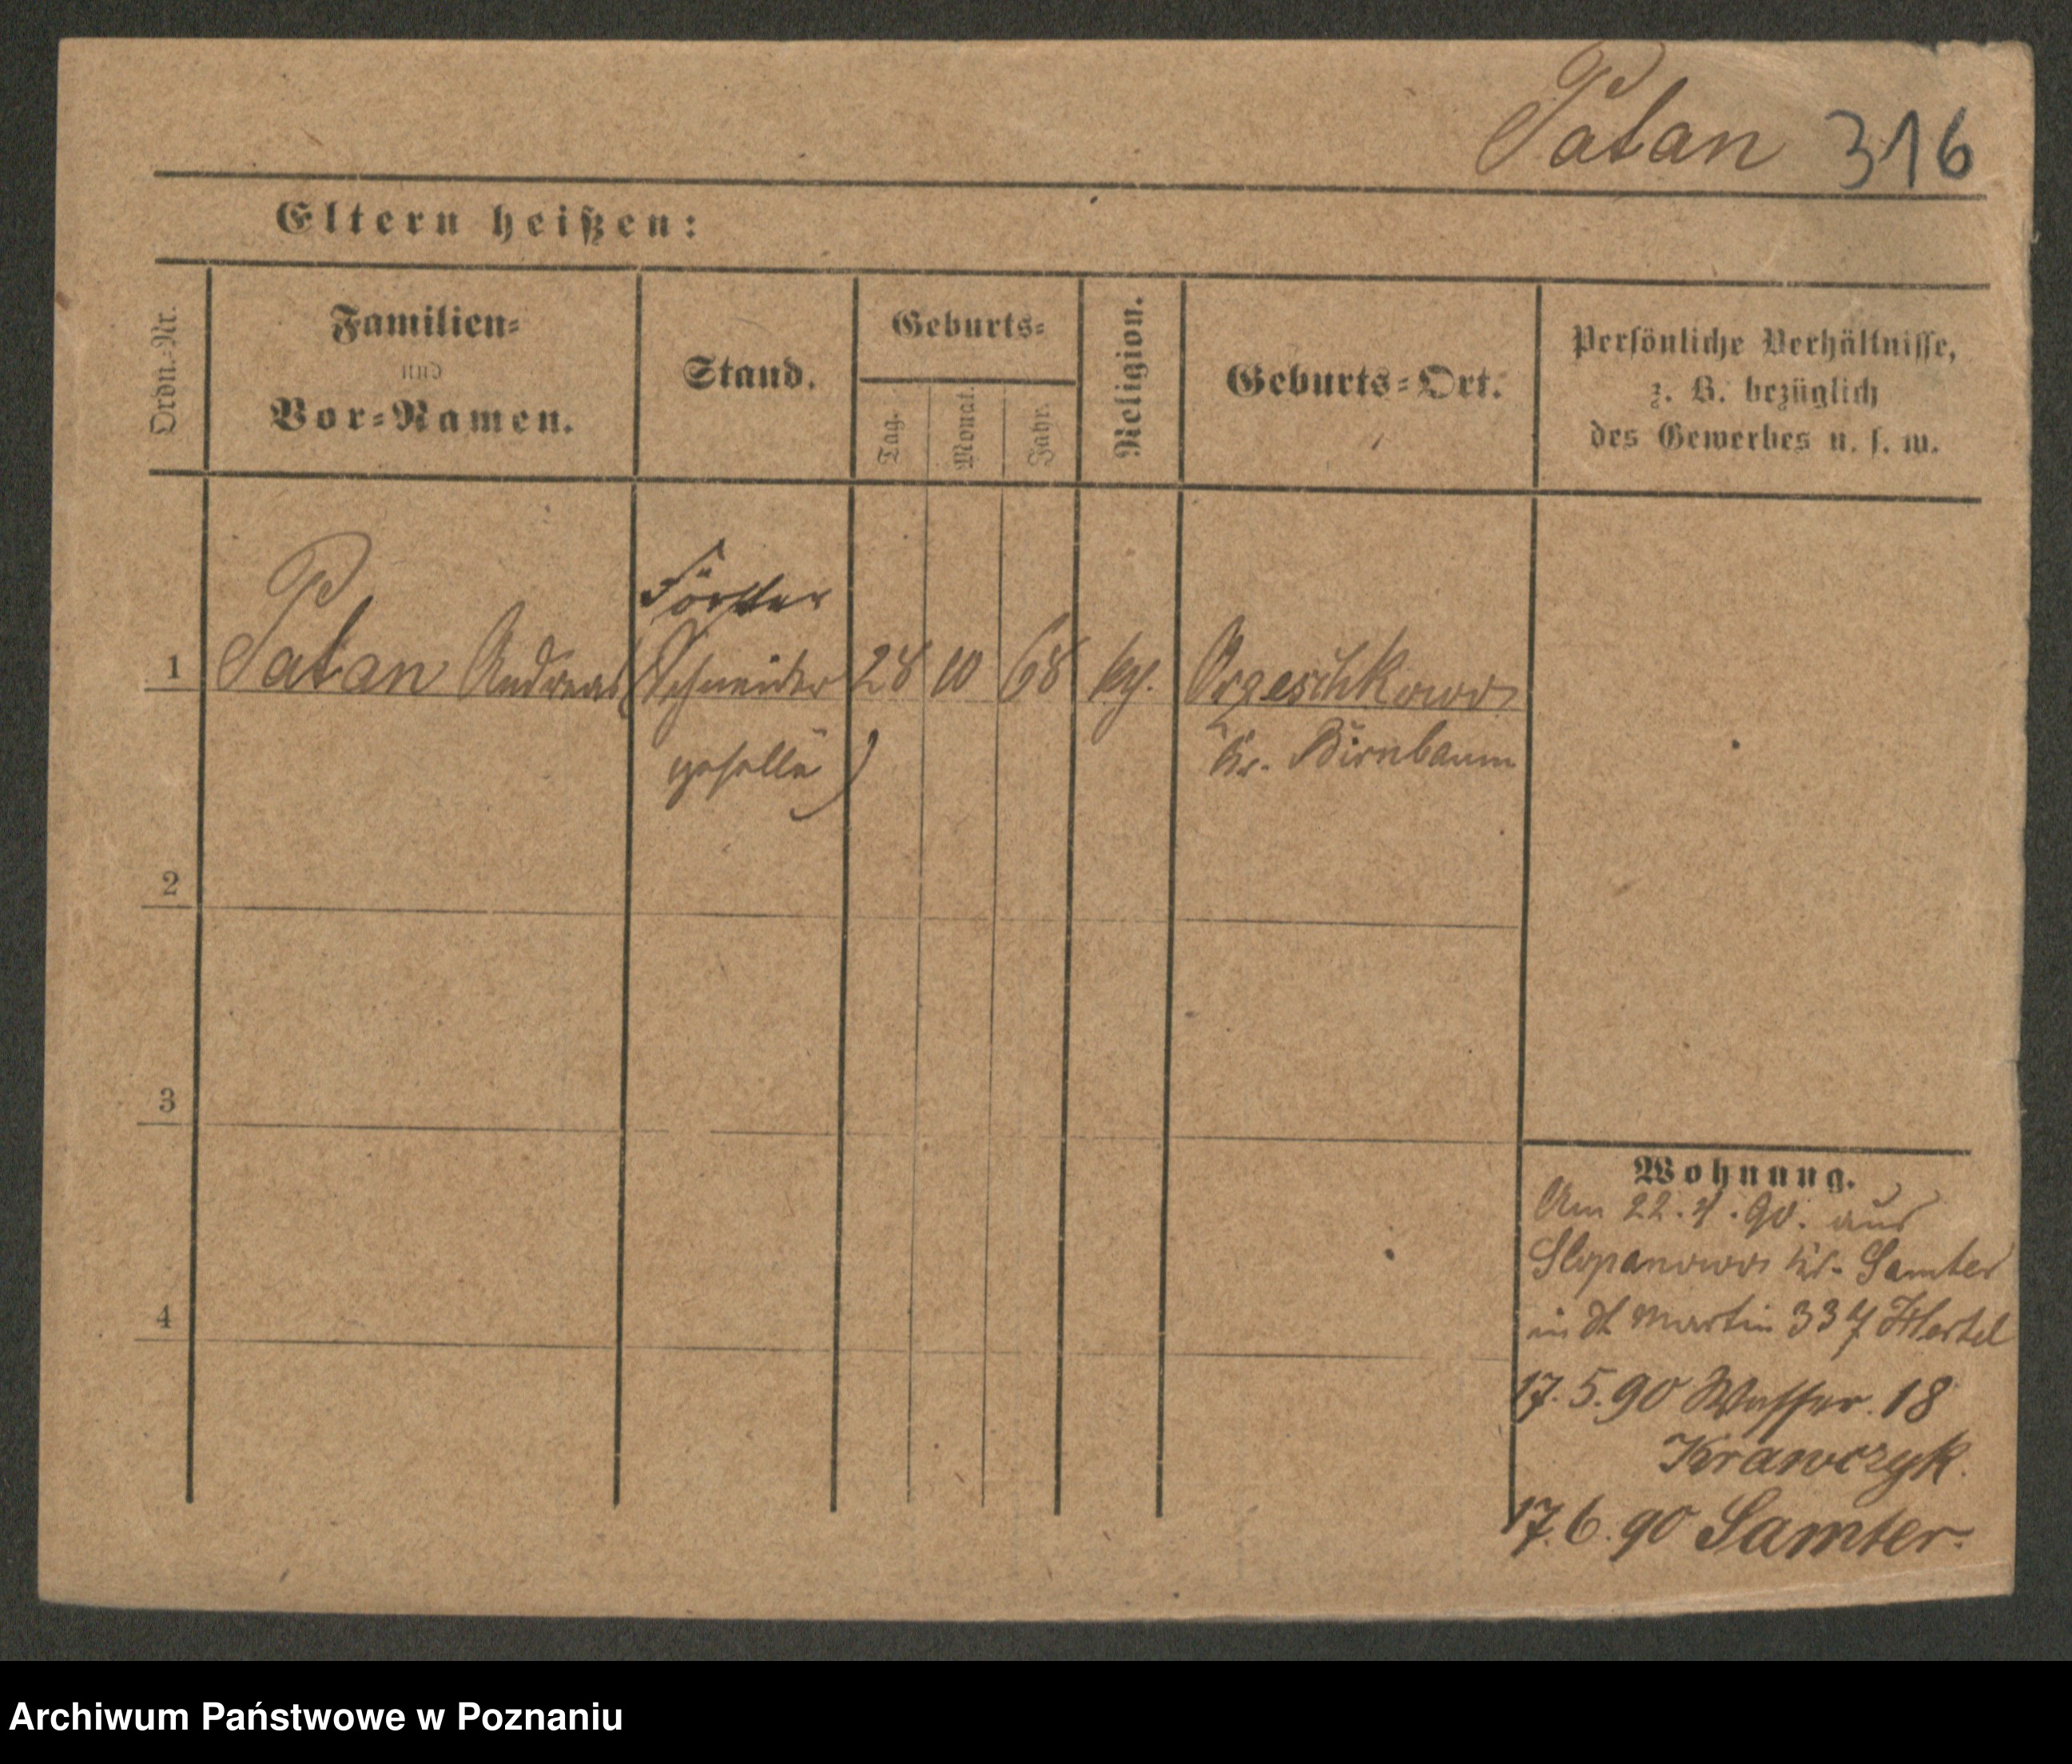 Patan 316
Eltern heißen:
Ordn.-Nr.
Familien-
und
Vor-Namen.
Stand.
Geburts-
Tag.
Monat.
Jahr.
Religion.
Geburts-Ort.
Persönliche Verhältnisse,
z. B. bezüglich
des Gewerbes u. s. w.
Förster
1 Patan Andreas (Schneider 28 10 68 Orzeschkowo
geselle) Kr. Birnbaum
2
3
4
Wohnung.
Am 22. 4. 90. aus
Slopanowo Kr. Samter
in St Martin 33 Hertel
17. 5. 90 Wasser. 18
Krawczyk.
17. 6. 90 Samter.
Archiwum Państwowe w Poznaniu